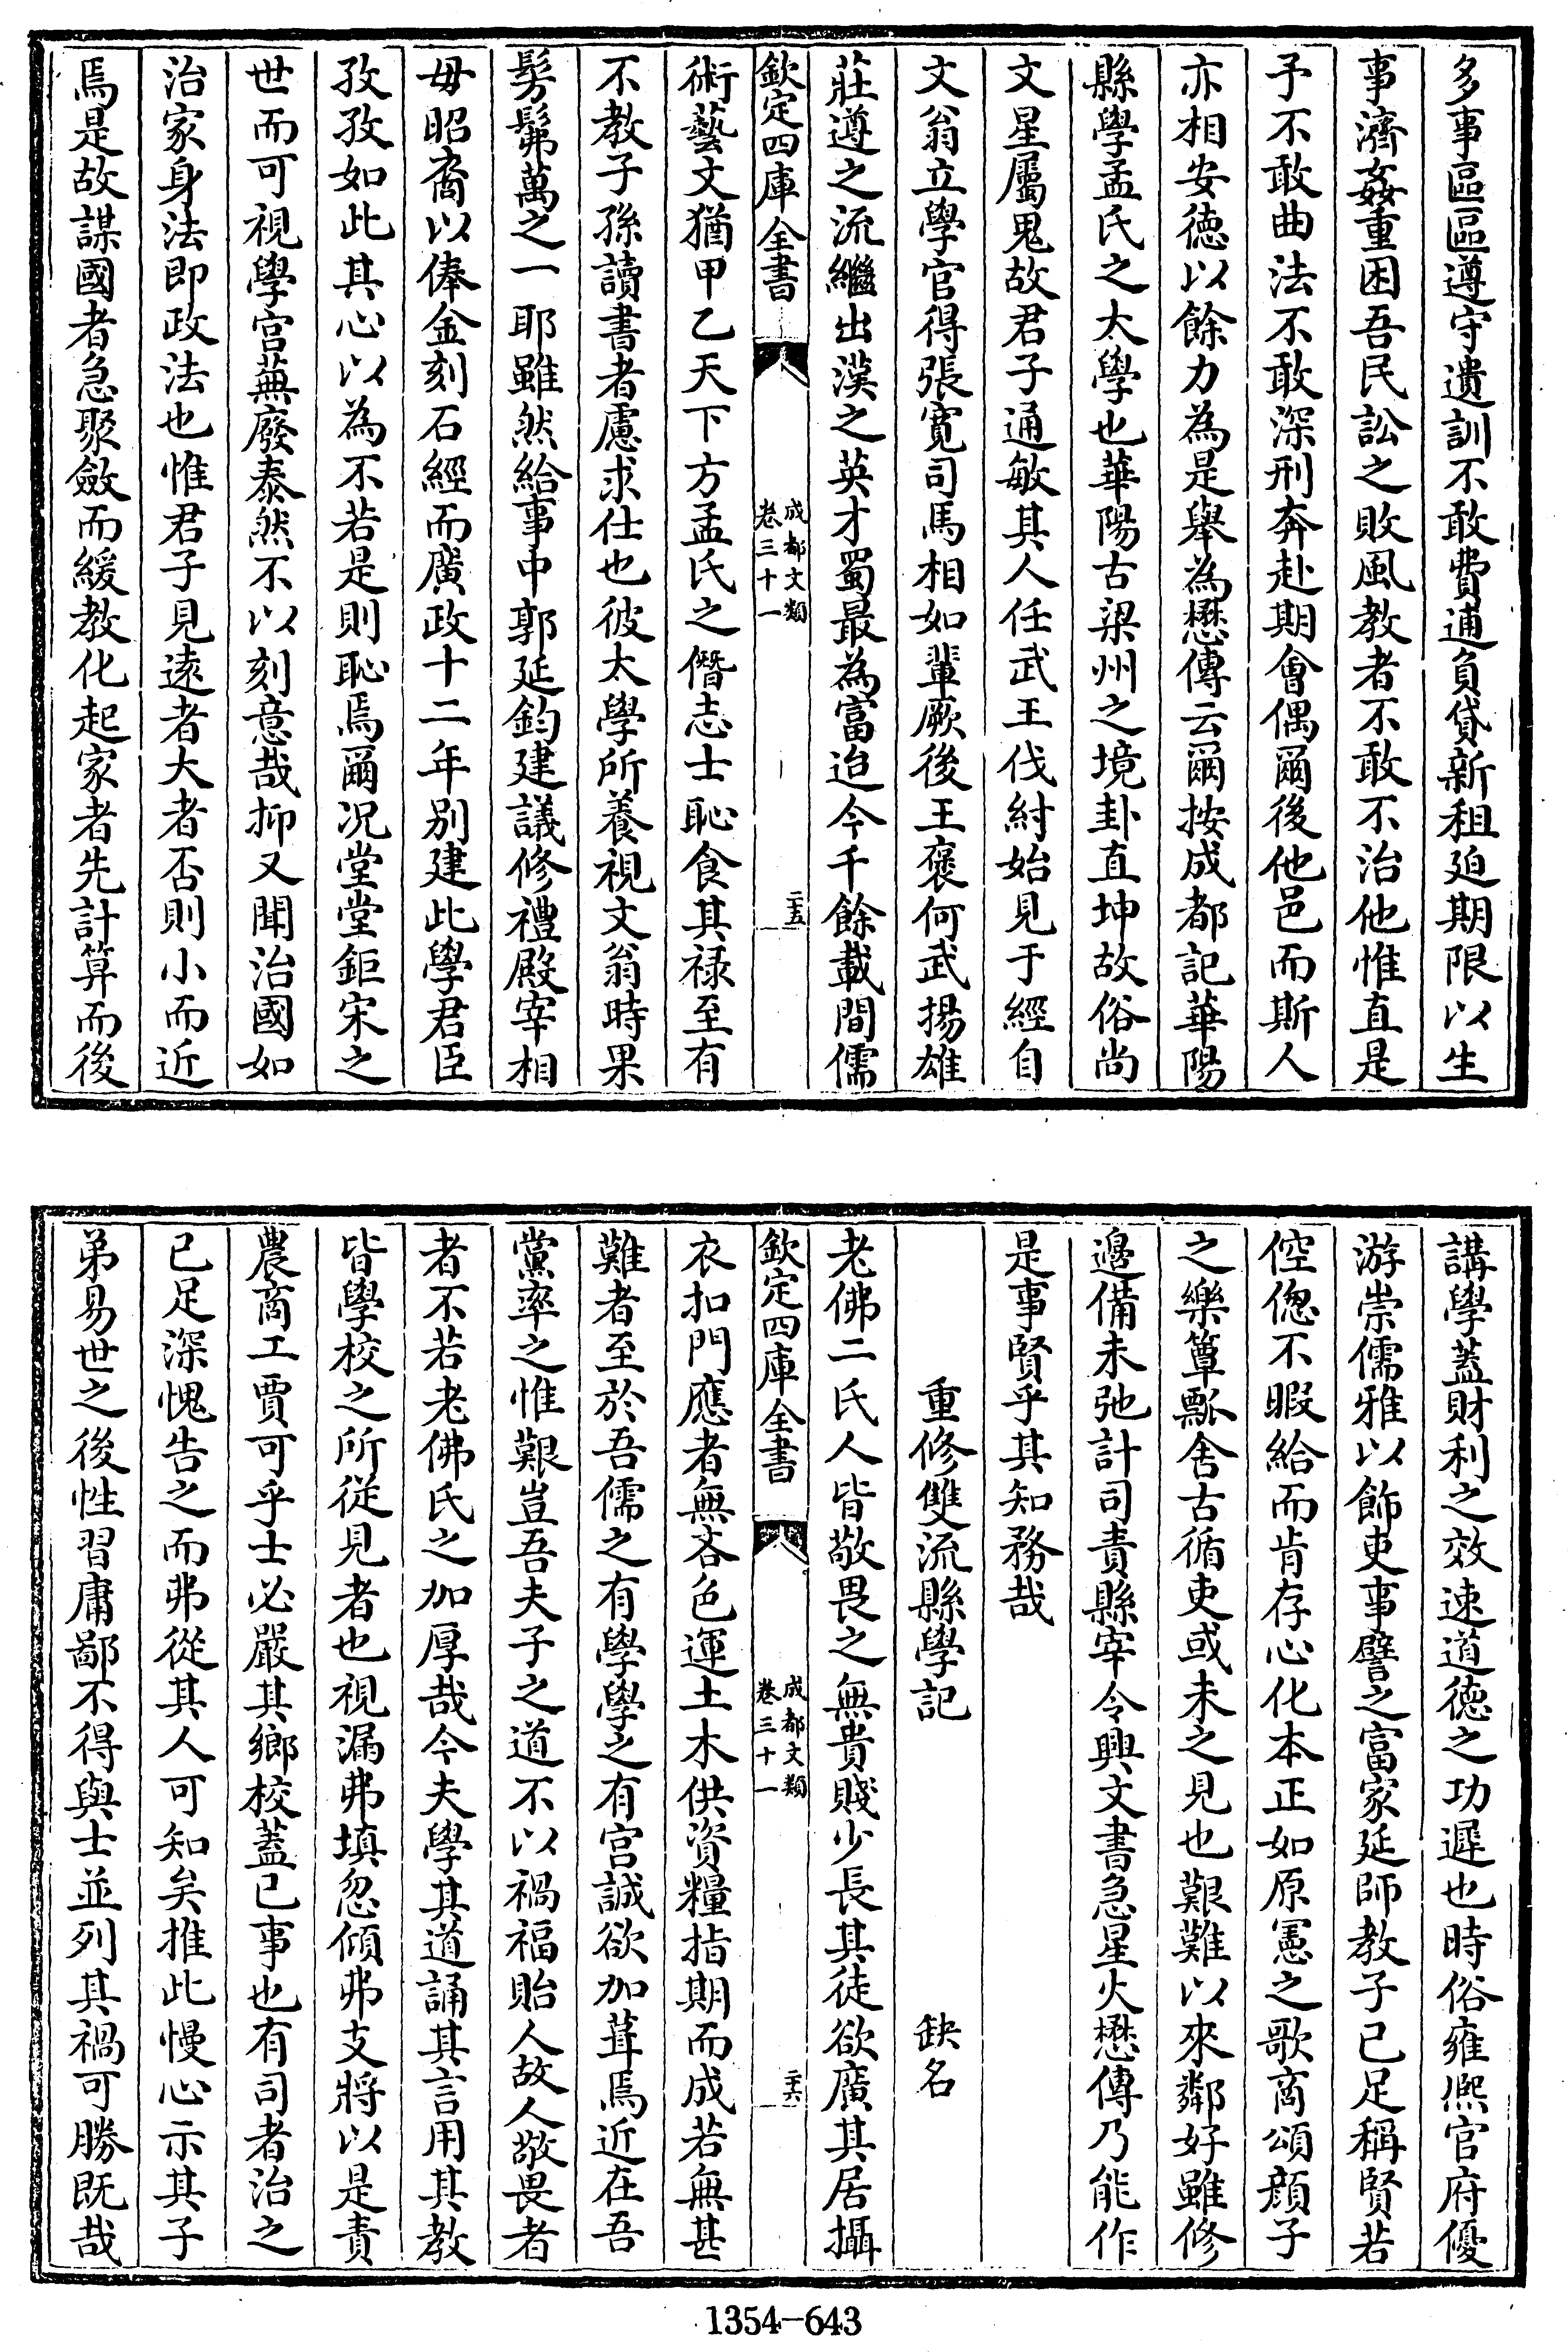 多事區區遵守遺訓不敢費逋負貸新租廹期限以生
事濟姦重困吾民訟之敗風教者不敢不治他惟直是
予不敢曲法不敢深刑奔赴期會偶爾後他邑而斯人
亦相安德以餘力為是舉為懋傳云爾按成都記華陽
縣學孟氏之太學也華陽古梁州之境卦直坤故俗尚
文星屬鬼故君子通敏其人任武王伐紂始見于經自
文翁立學官得張寛司馬相如輩厥後王褒何武揚雄
莊遵之流繼出漢之英才蜀最為富迨今千餘載間儒
欽定四庫全書
成都文類
卷三十一
二十五
術藝文猶甲乙天下方孟氏之僭志士恥食其禄至有
不教子孫讀書者慮求仕也彼太學所養視文翁時果
髣髴萬之一耶雖然給事中郭延鈞建議修禮殿宰相
毋昭裔以俸金刻石經而廣政十二年别建此學君臣
孜孜如此其心以為不若是則恥焉爾况堂堂鉅宋之
世而可視學宫蕪廢泰然不以刻意哉抑又聞治國如
治家身法即政法也惟君子見遠者大者否則小而近
焉是故謀國者急聚斂而緩教化起家者先計算而後
講學蓋財利之效速道德之功遲也時俗雍熈官府優
游崇儒雅以飾吏事譬之富家延師教子已足稱賢若
倥偬不暇給而肯存心化本正如原憲之歌商頌顔子
之樂簞瓢舍古循吏或未之見也艱難以來鄰好雖修
邊備未弛計司責縣宰令興文書急星火懋傳乃能作
是事賢乎其知務哉
重修雙流縣學記 缺名
老佛二氏人皆敬畏之無貴賤少長其徒欲廣其居攝
欽定四庫全書
成都文類
卷三十一
二十六
衣扣門應者無吝色運土木供資糧指期而成若無甚
難者至於吾儒之有學學之有宫誠欲加葺焉近在吾
黨率之惟艱豈吾夫子之道不以禍福貽人故人敬畏者
者不若老佛氏之加厚哉今夫學其道誦其言用其教
皆學校之所從見者也視漏弗填忽傾弗支將以是責
農商工賈可乎士必嚴其鄉校蓋已事也有司者治之
已足深愧告之而弗從其人可知矣推此慢心示其子
弟易世之後性習庸鄙不得與士並列其禍可勝既哉
1354-643